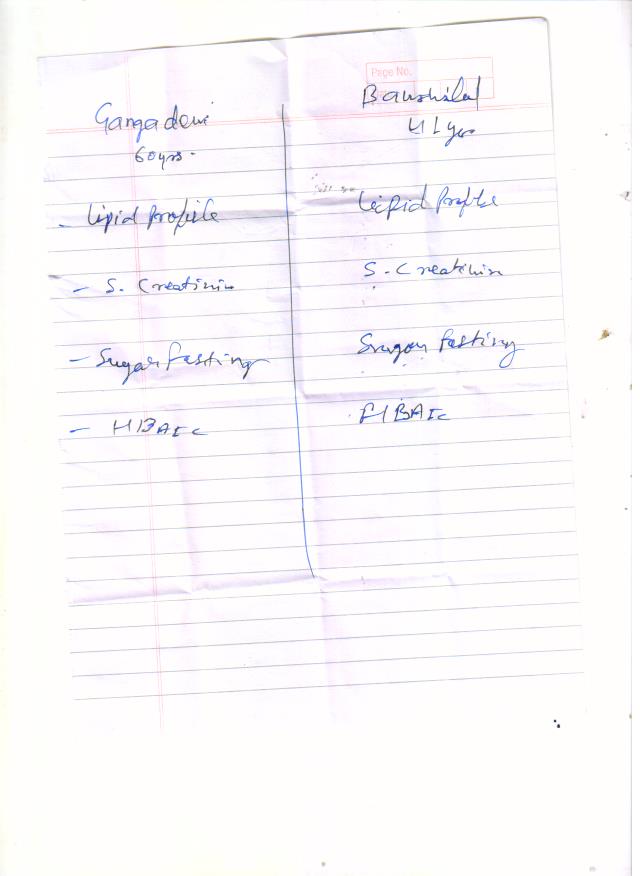 Page No.
Gangadevi
60yrs.
- Lipid Profile
- S. Creatinin
- Sugar Fasting
- HBA1C
Banshilal
41yrs
Lipid Profile
S. Creatinin
Sugar Fasting
HBA1C